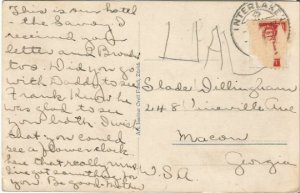 This is our hotel
the Savoy I
received your
letter and Brooks
too. Did you go
with Daddy to see
Frank
he
was glad to see
you both. I was
that you could
see a flower clock
here that really runs
I've got something for
you. Be good. Mother
INTERLAKEN
Slade Dellingham
248 Vineville Ave
Macon
Georgia
U.S.A